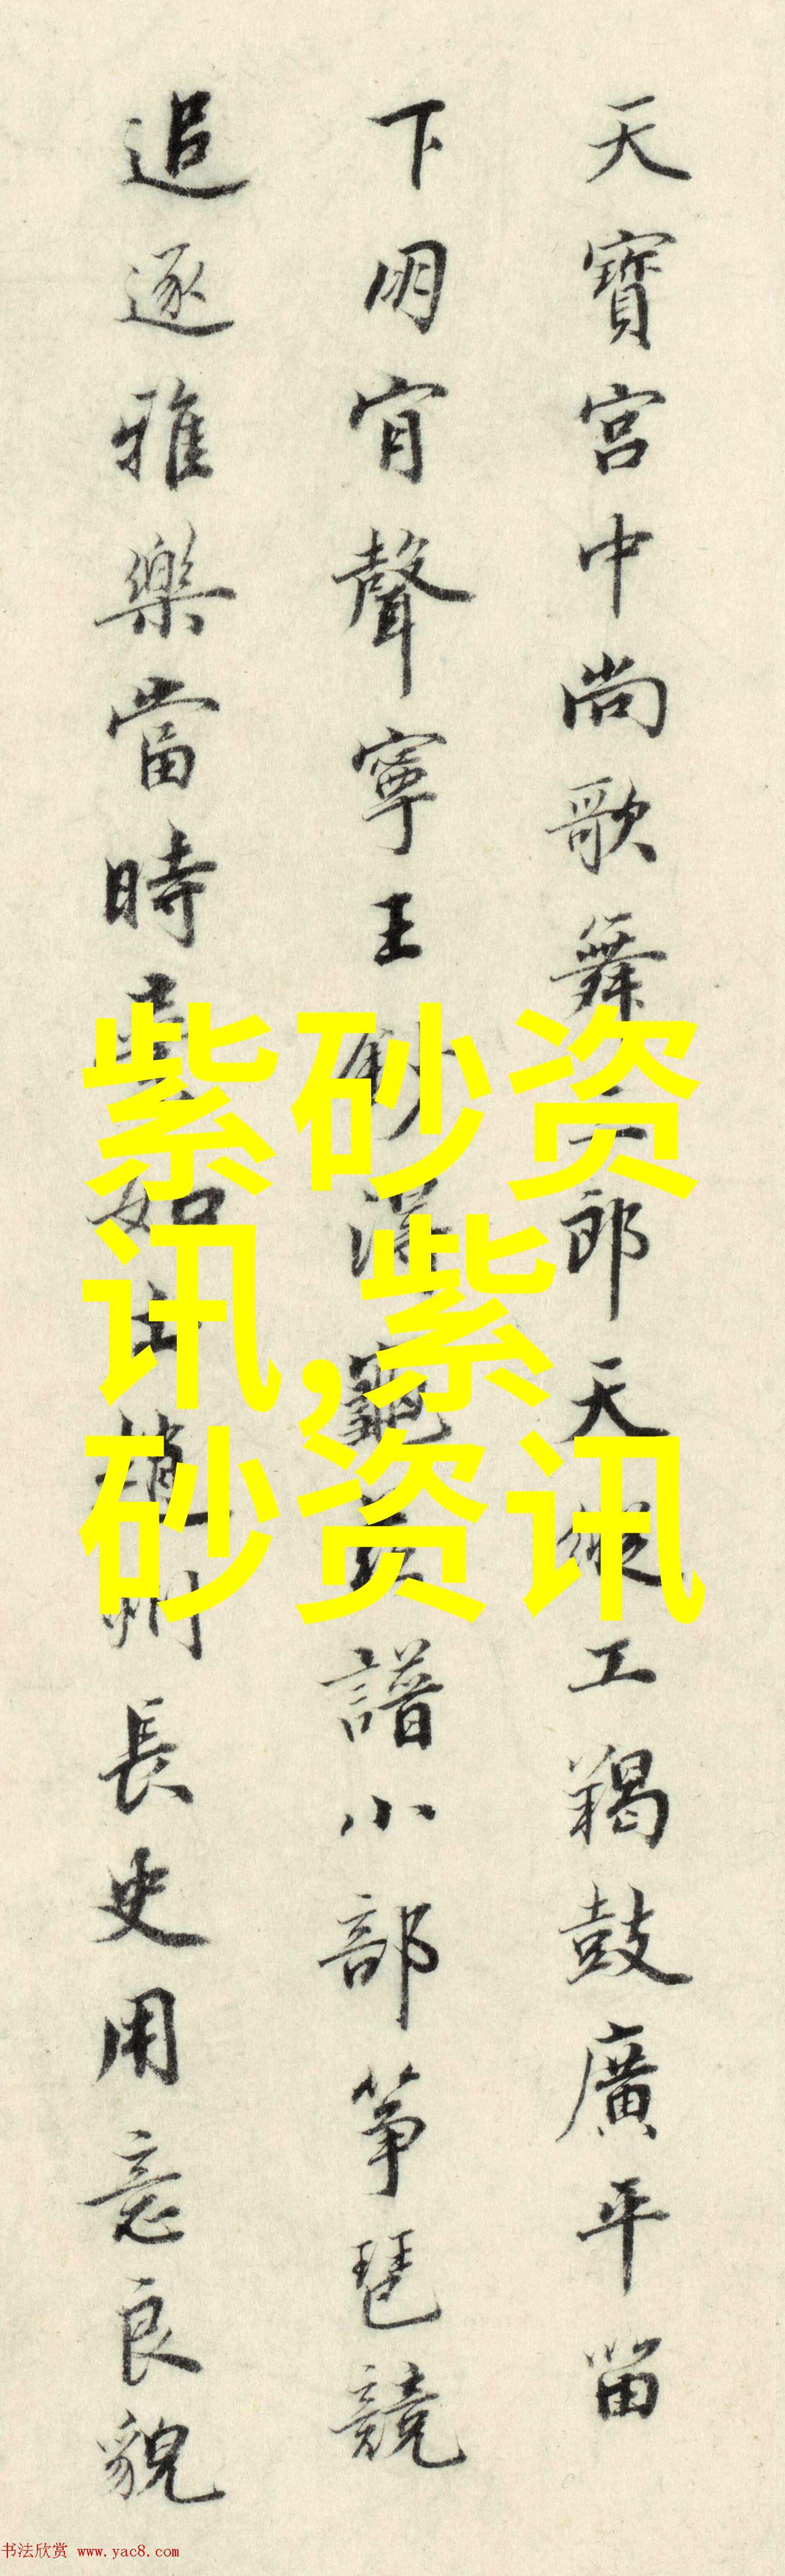 天寶宮中尚歌舞郎天縱工羯鼓廣平留
下朋肎聲寧王龜茲譜小部箏琶競
追逐雅樂當時如土趙州長史用意良貌
紫砂资
讯,紫
砂资讯
书法欣赏 www.yac8.com